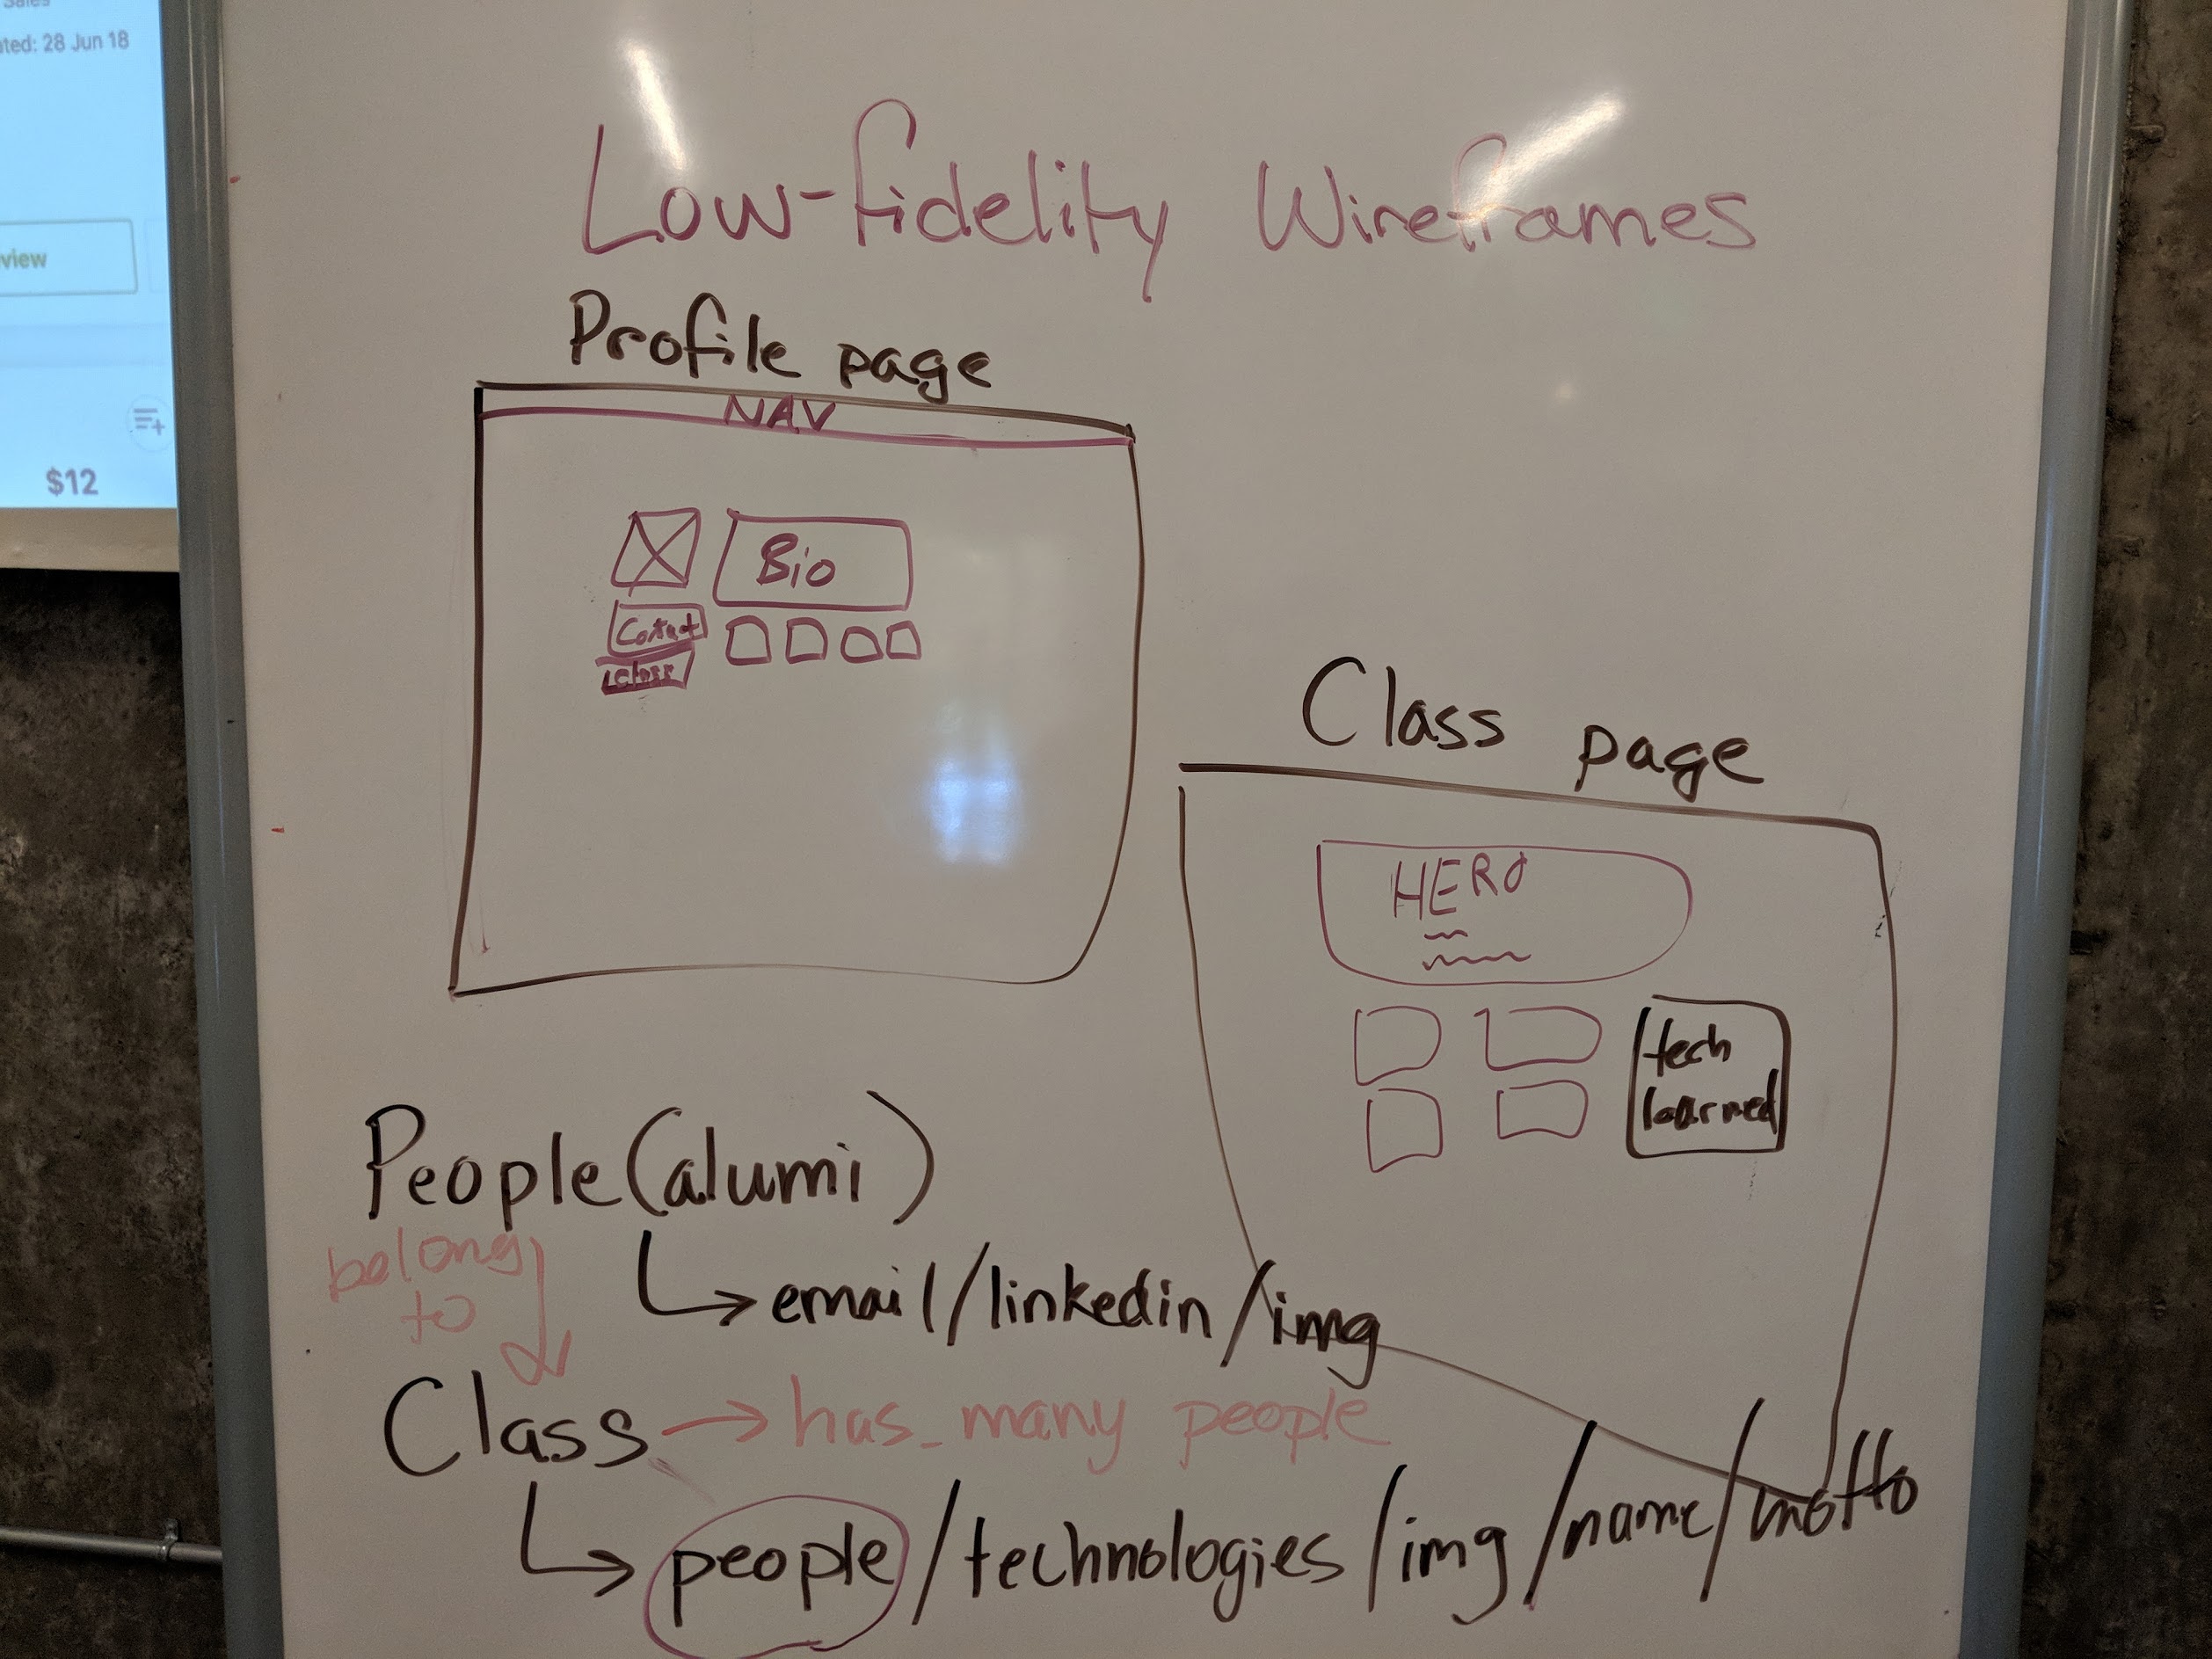 Sales
ated: 28 Jun 18
view
$12
Low-fidelity Wireframes
Profile page
NAV
Bio
Contact
class
Class page
HERO
tech
learned
People (alumi)
belong
to
email/linkedin/img
Class → has_many people
people/technologies/img/name/motto